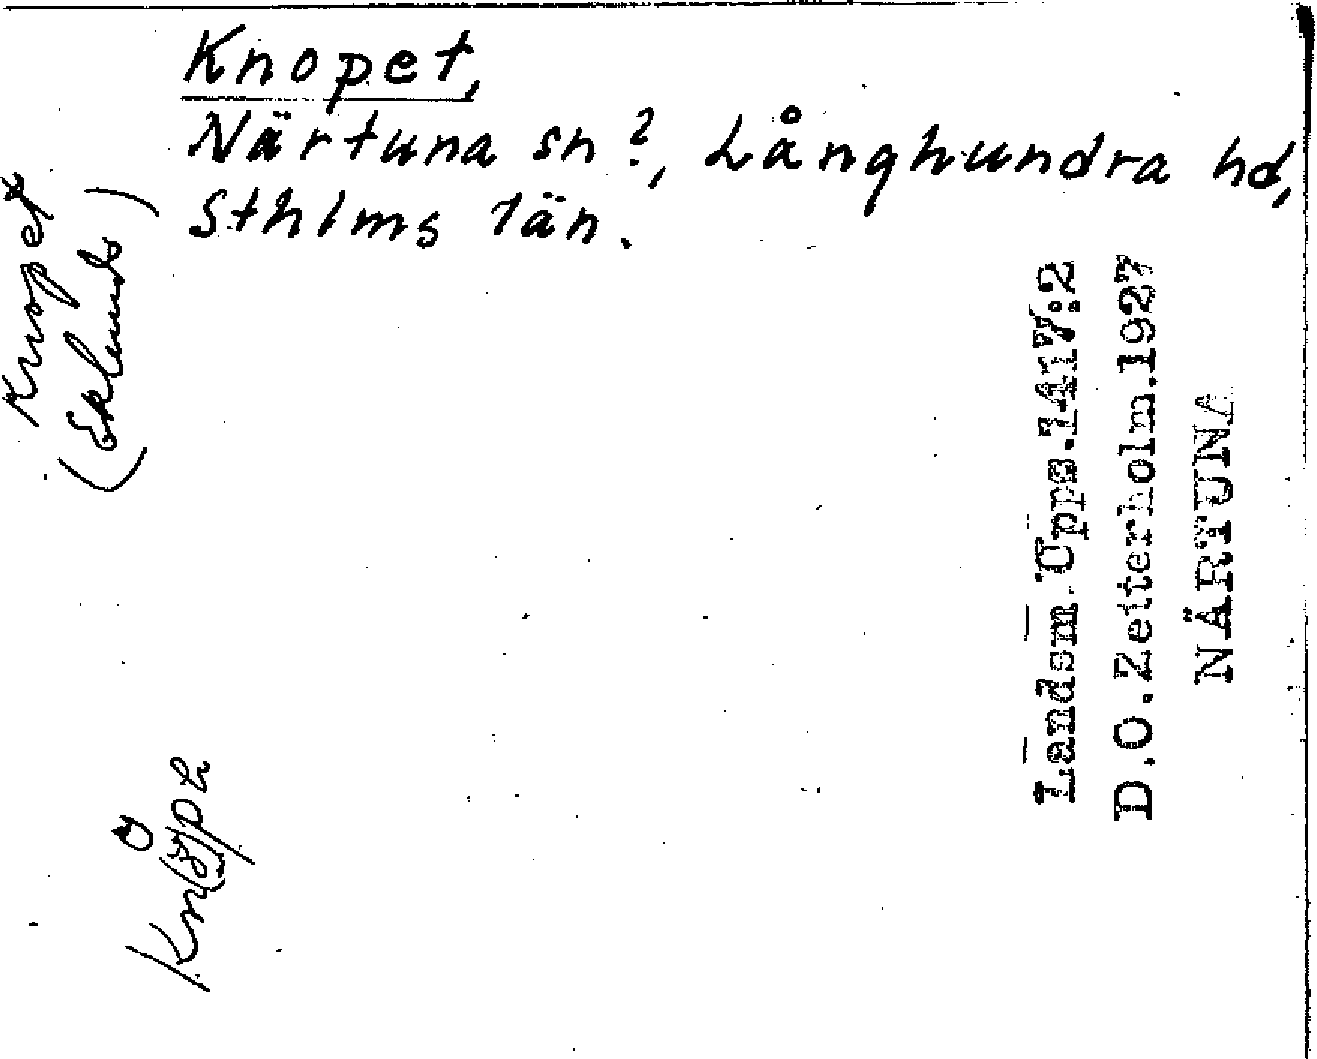 Knopet,
Närtuna sn?, Långhundra hd,
Sthlms län.
Knopet
(Eklunds)
Landsm. Upps. 1417:2
D.O.Zetterholm.1927
NÄRTUNA